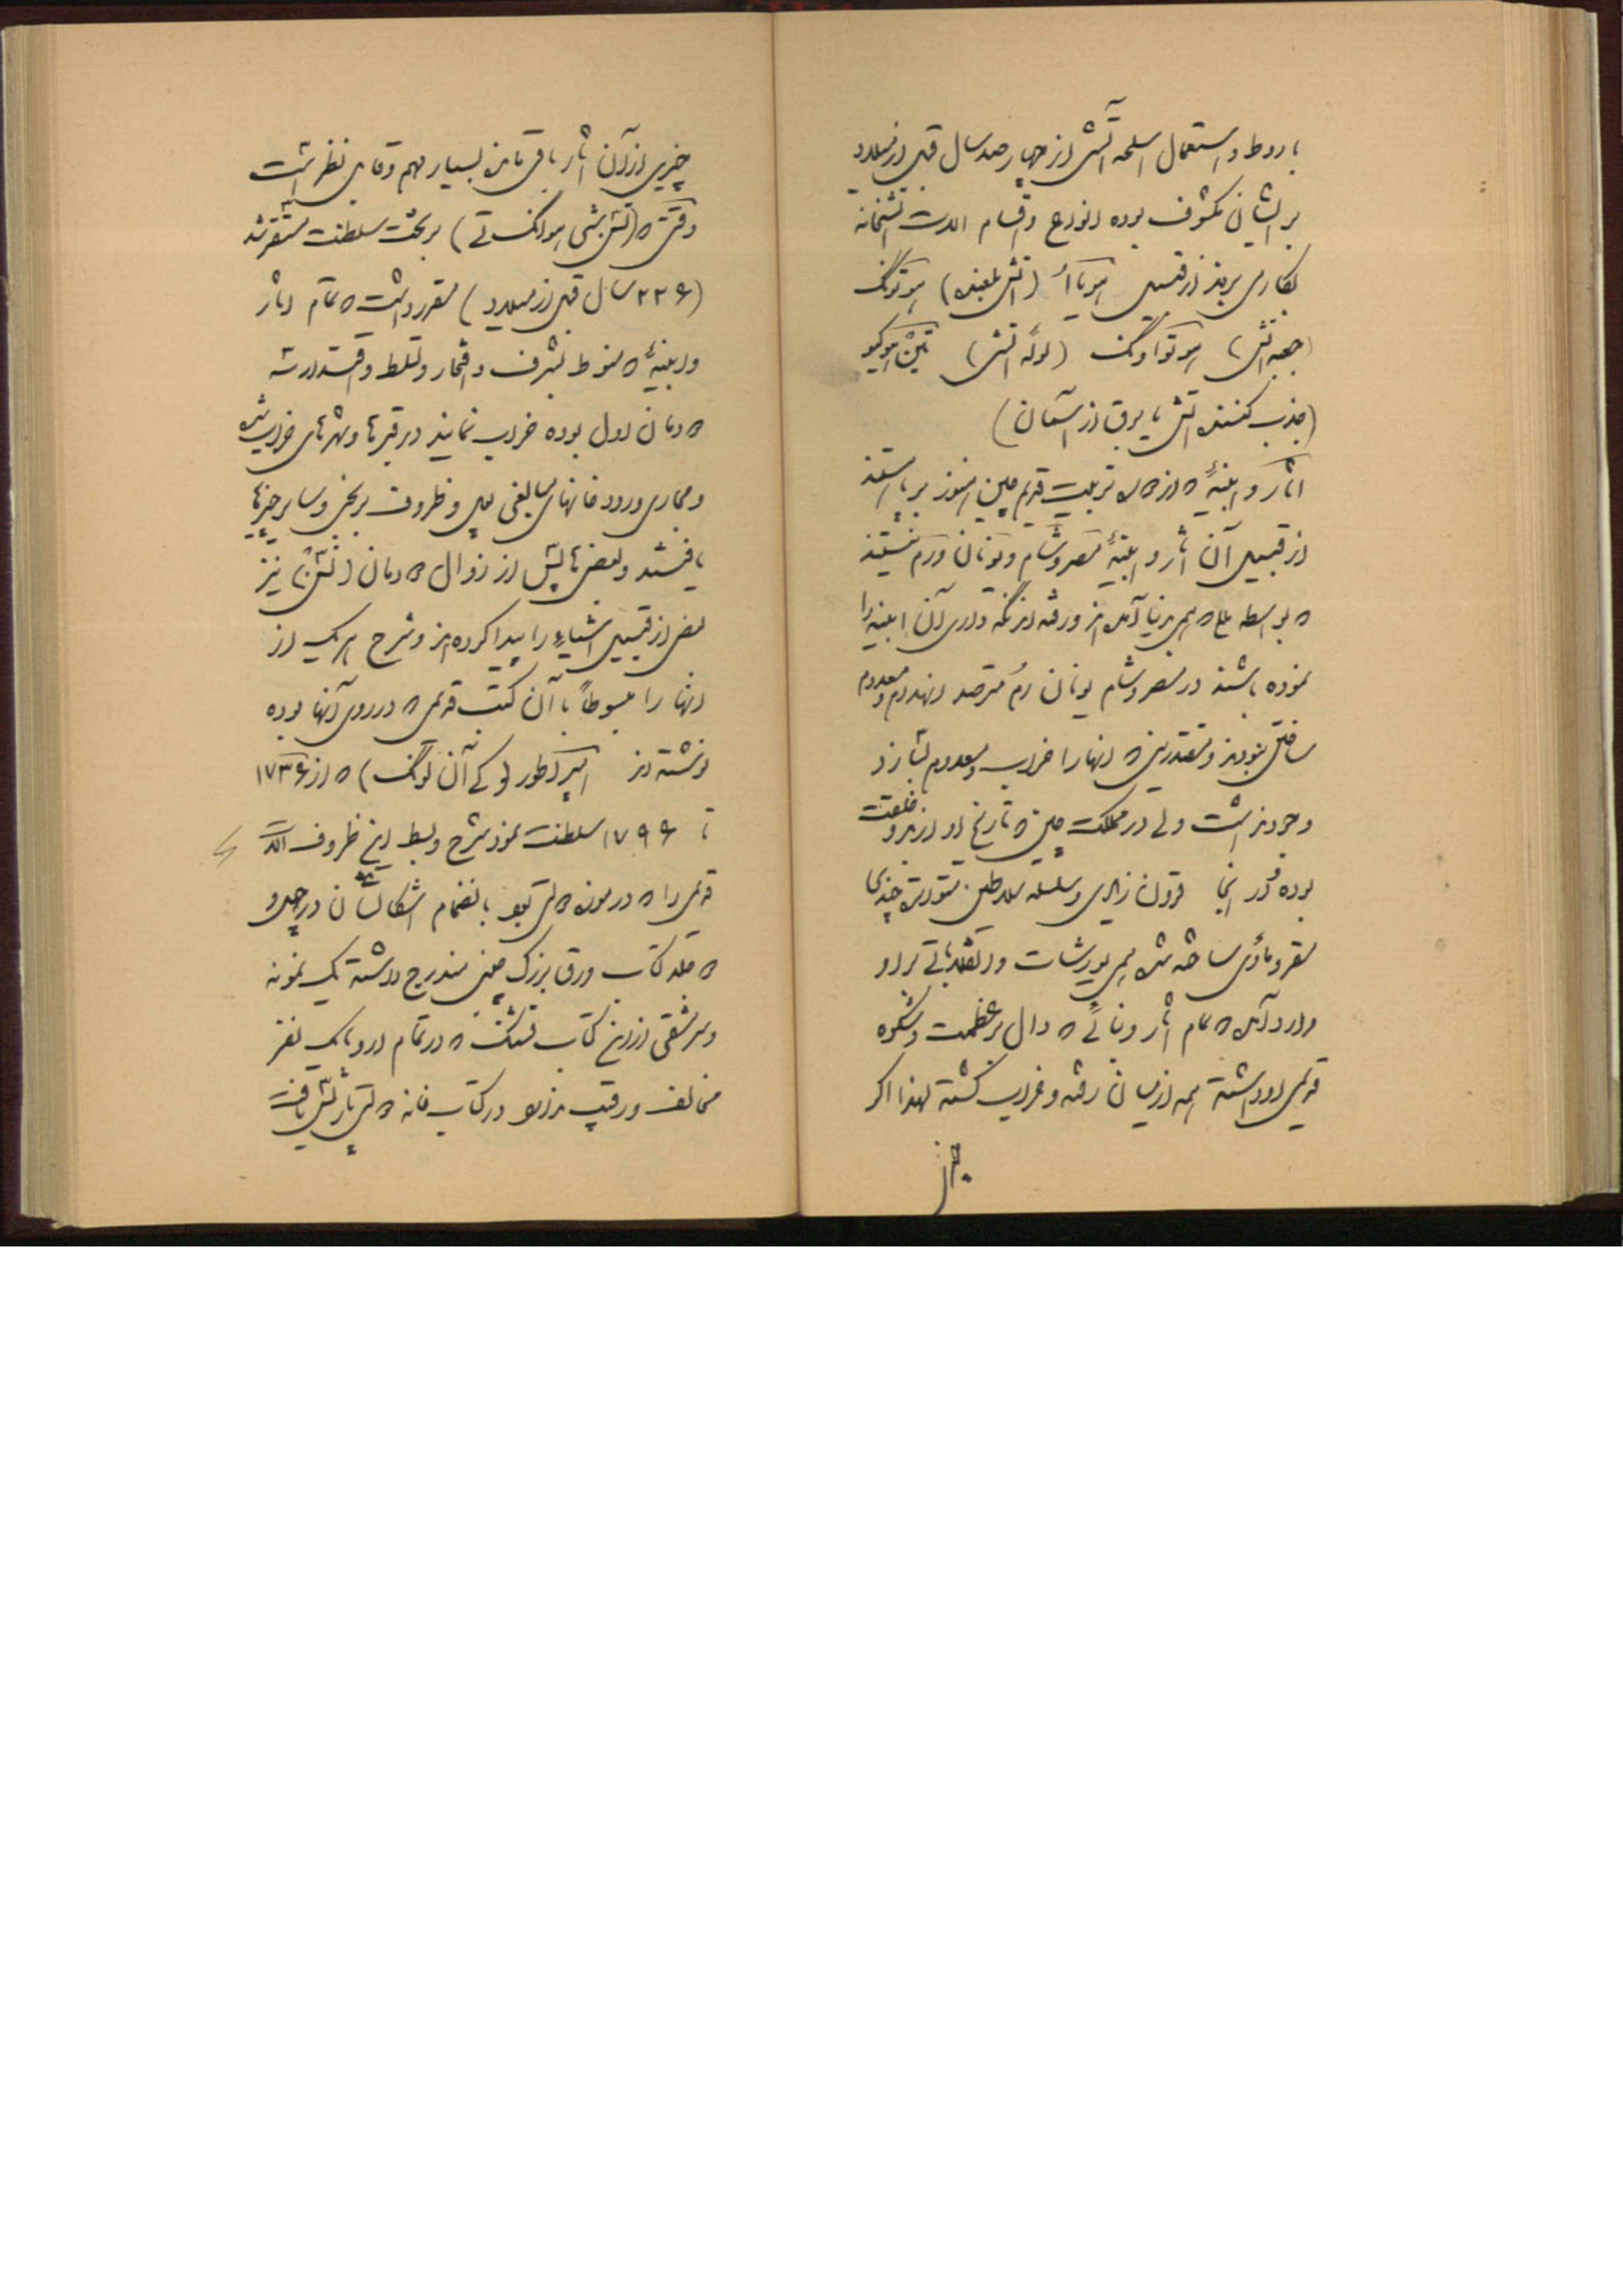 باروط و استعمال اسلحه آتشی از چهار صد سال قبل از میلاد
بر ایشان مکشوف بوده انواع و اقسام آلات آتشخانه
بکار می بردند از قبیل هوپاأ (آتش بلعنده) هوتونگ
(جعبه آتش) هوتواونگ (لوله آتش) تین هوکیو
(جذب کننده آتش یا برق از آسمان)
آثار و ابنیهٔ که از حالات تربیت قدیم چین هنوز برپا هستند
از قبیل آن آثار و ابنیهٔ مصر و شام و یونان و رم نیستند
که بواسطه همه بدنیا آمده اند و رفته اند نگه داری آن ابنیه را
نموده باشند در مصر و شام یونان رم مترصد انهدام و معدوم
ساختن نبودند و مقتدرینی که آنها را خراب و معدوم بسازند
وجود نداشت ولی در مملکت چین که تاریخ او از بدو خلقت
بوده و در آنجا قرون زیادی و سلسله سلاطین متعدده چندی
مقر و مأوی ساخته شده همه یورشات و انقلاباتی بر او
وارد آمده که تمام آثار و بنائی که دال بر عظمت و شکوه
قدیمی او داشته همه از میان رفته و خراب گشته لهذا اگر
چیزی از آن آثار باقی مانده بسیار مهم و قابل نظر است
وقتی که (تشی شی هوانگ تی) بر تخت سلطنت مستقر شد
(۲۲۶ سال قبل از میلاد) مقرر داشت که تمام آثار
و ابنیهٔ که منوط بشرف و افتخار و تسلط و اقتدارات
خاندان اول بوده خراب نمایند در قبرها و شهرهای خراب شده
و مجاری رودخانهای مبالغی پول و ظروف برنجی و سایر چیزها
یافتند و بعضی ها پیش از زوال خاندان (تشن) نیز
بعضی از قبیل اشیاء را پیدا کرده اند و شرح هر یک از
آنها را مبسوطاً با آن کتب قدیمی که در روی آنها بوده
نوشته اند امپراطور (کی آن لونگ) که از ۱۷۳۶
تا ۱۷۹۶ سلطنت نمود شرح و بسط این ظروف آلات
قدیمی را که در موزه بود بانضمام اشکالشان در چهل و
جلد کتاب ورق بزرگ چینی مندرج داشته یک نمونه
و سرمشقی از این کتاب قشنگ که در تمام اروپا یک نفر
مخالف و رقیب ندارد در کتاب خانه پاریس یافت